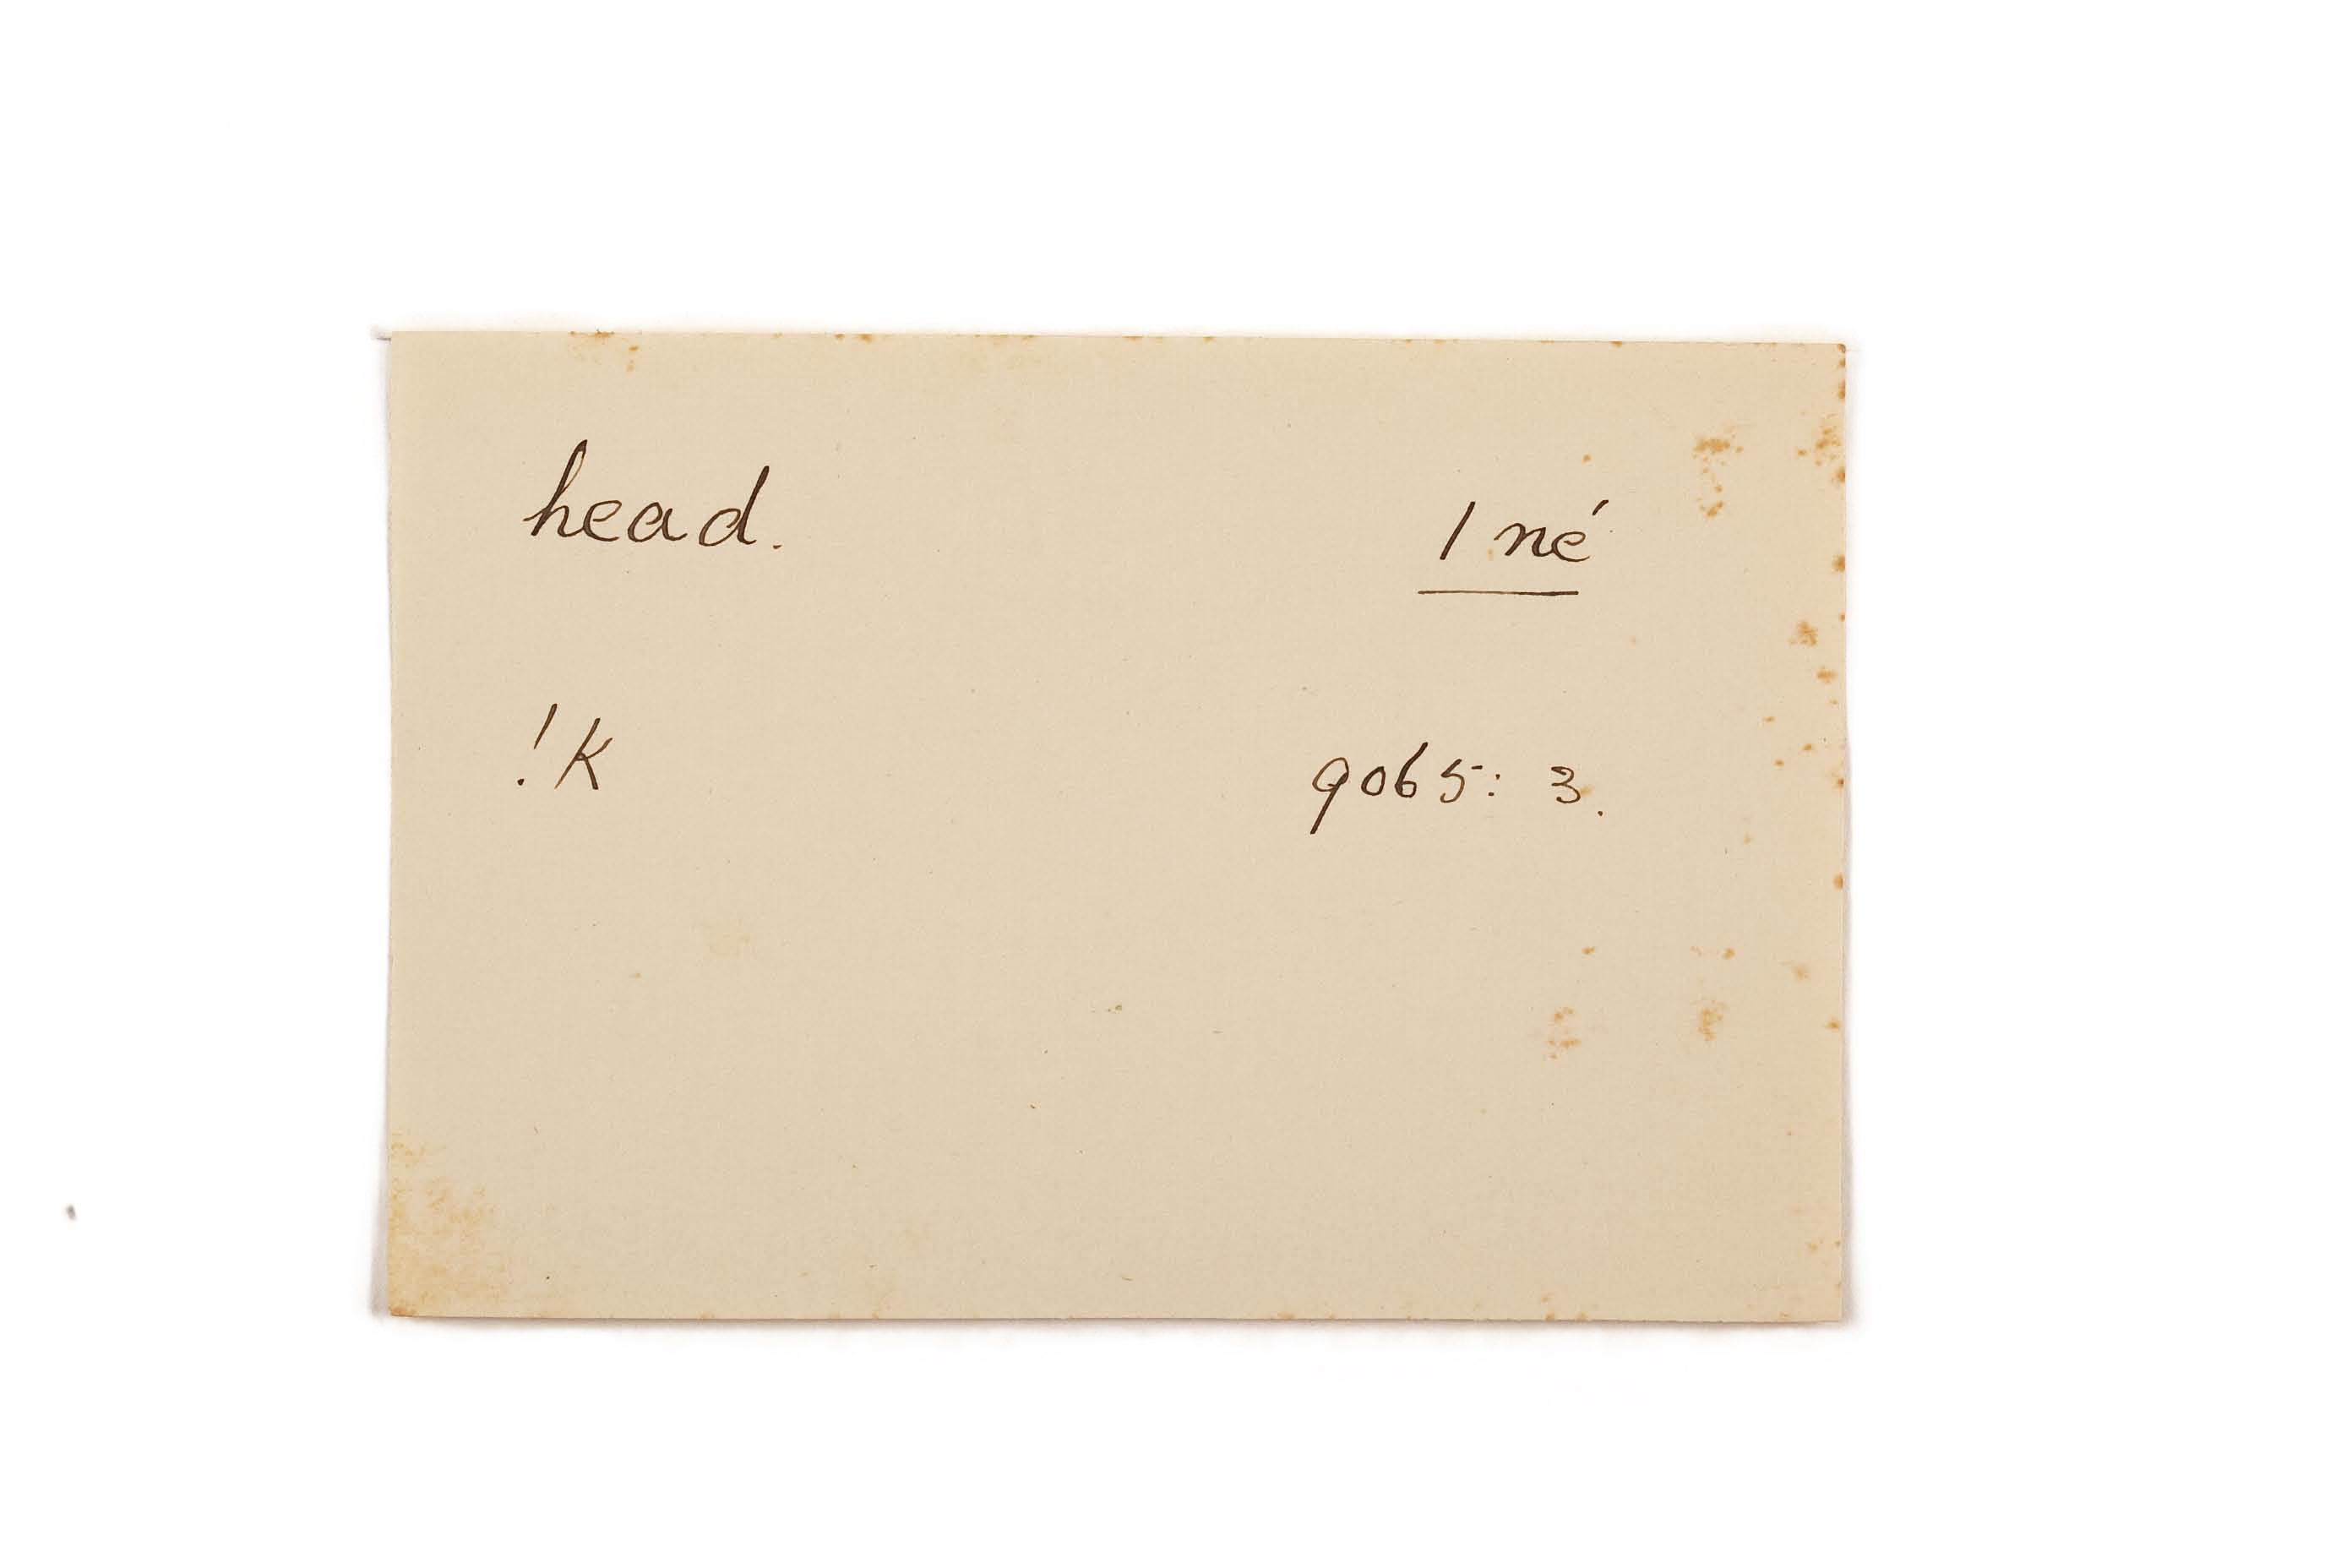 head. | né
!K 9065: 3.